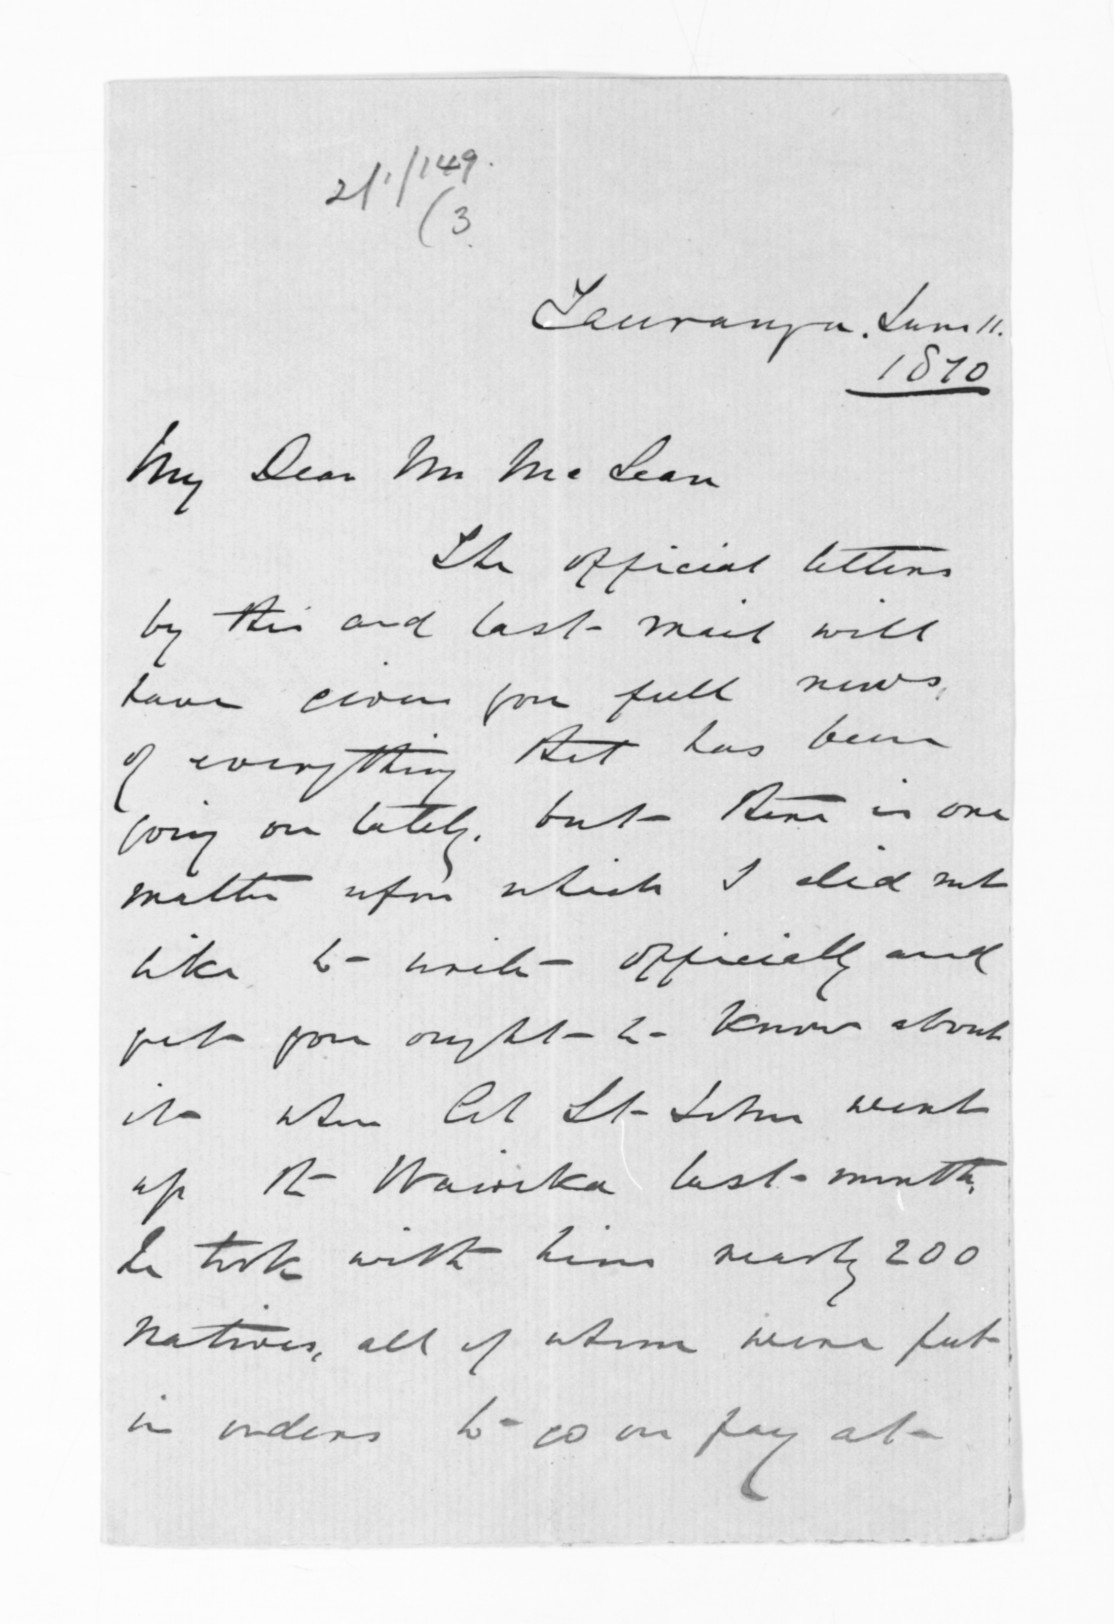 2/1/149.
(3.
Tauranga. June 11.
1870
My Dear Mr McLean
The official letters
by this and last mail will
have given you full news,
of everything that has been
going on lately. but there is one
matter upon which I did not
like to write officially and
yet you ought to know about
it when Col St John went
up the Waioeka last month,
he took with him nearly 200
natives, all of whom were put
in orders to go on pay at